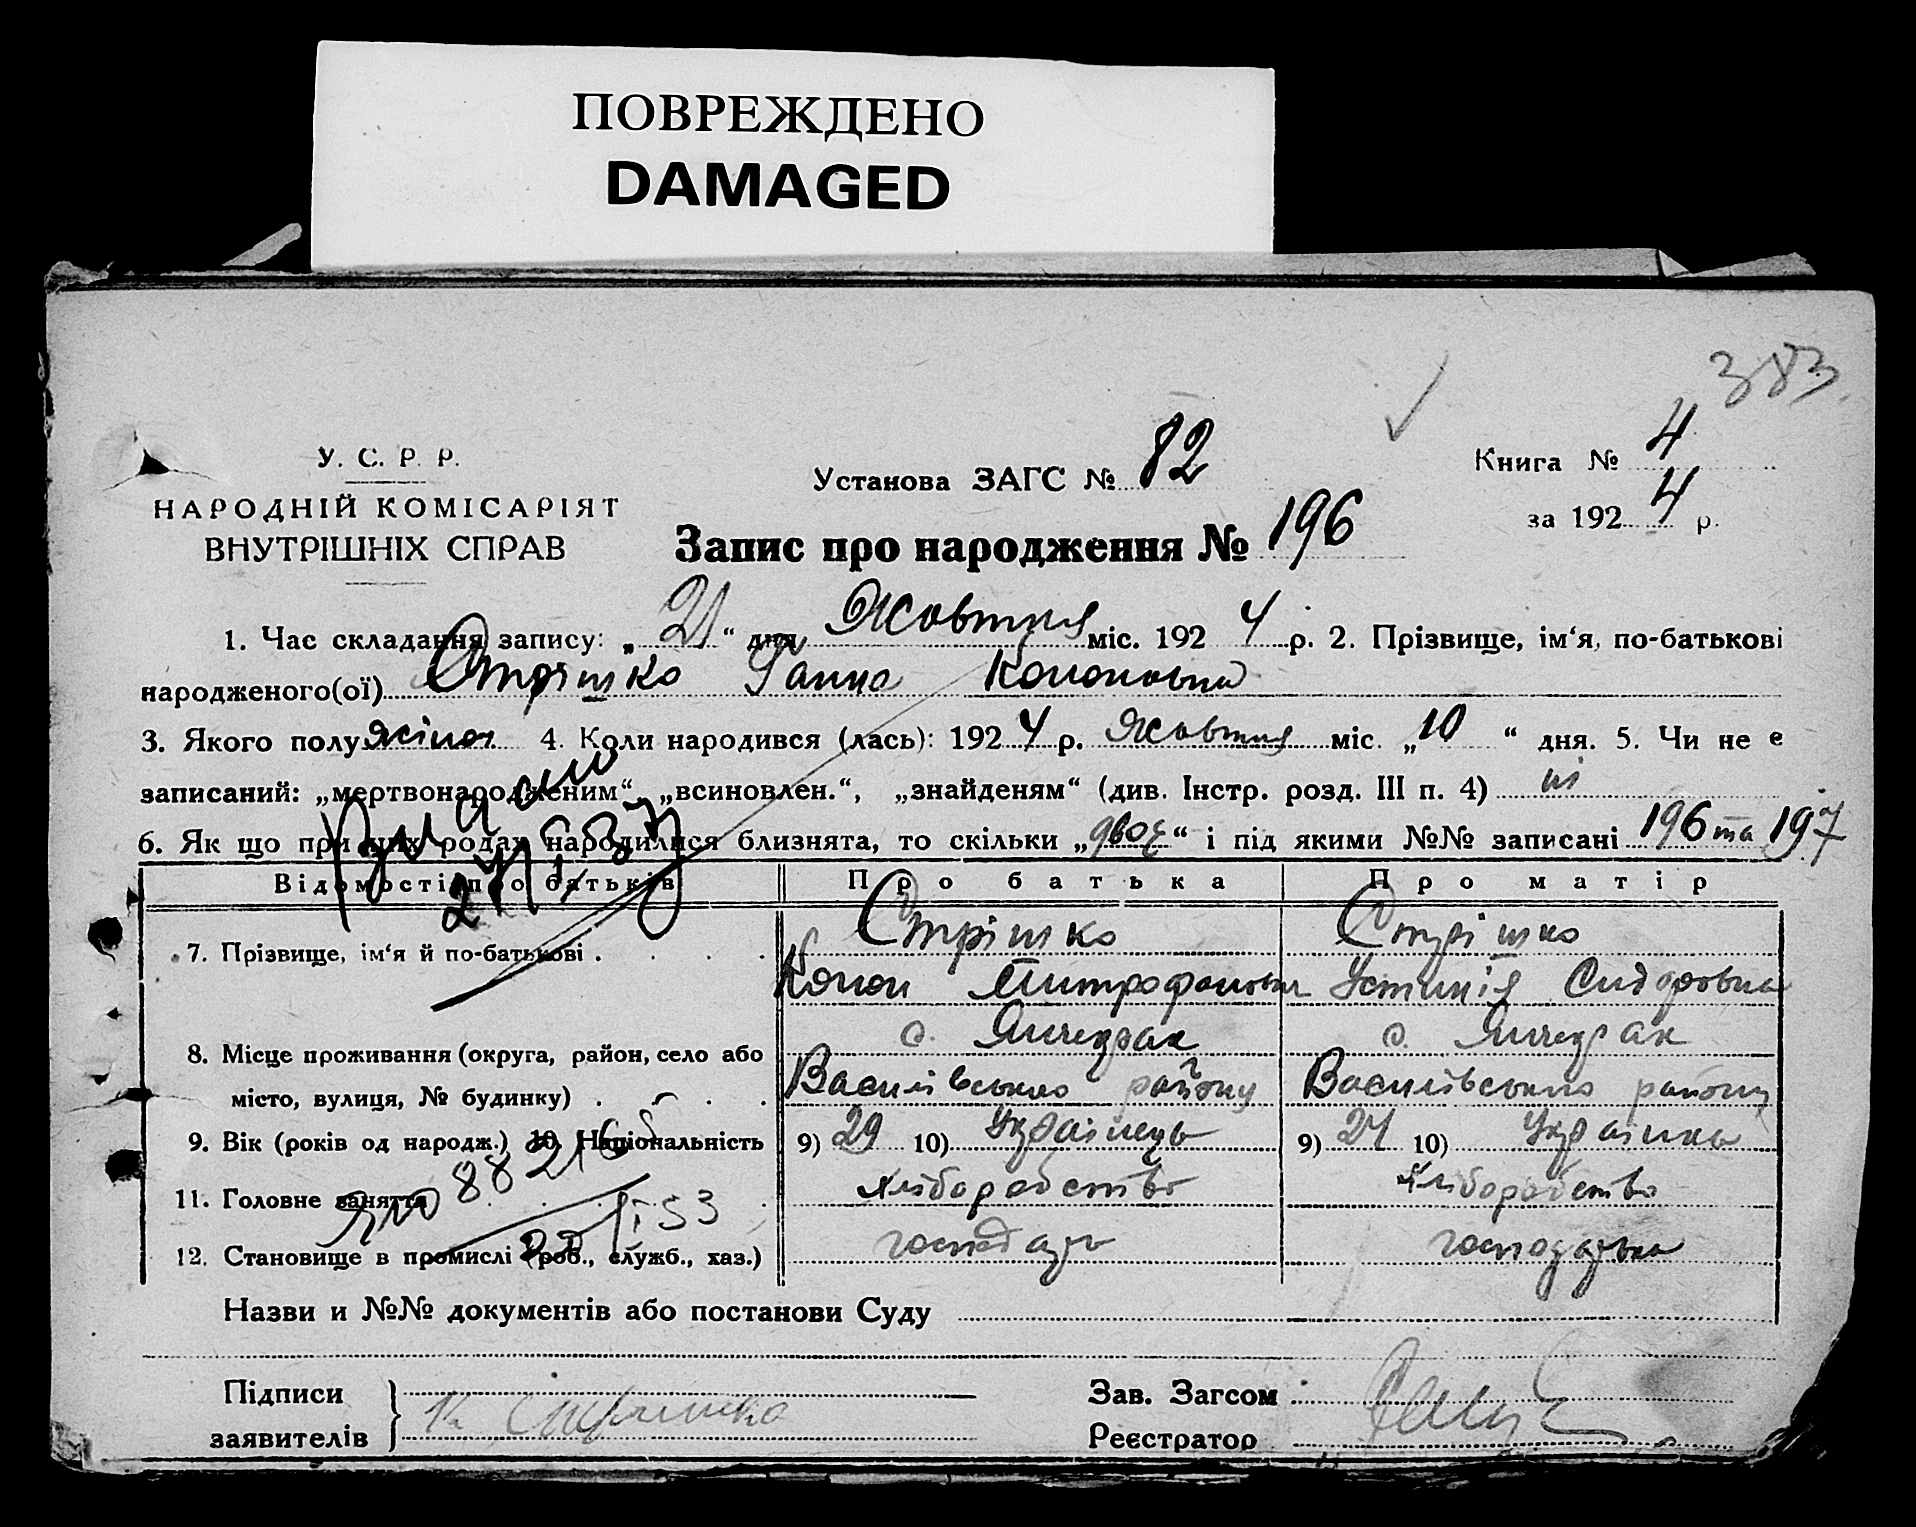 ПОВРЕЖДЕНО
DAMAGED
383
У. С. Р. Р.
НАРОДНІЙ КОМІСАРІЯТ
ВНУТРІШНІХ СПРАВ
Установа ЗАГС № 82
Книга № 4
за 192 4 р.
Запис про народження № 196
1. Час складання запису: „ 21 “ дня Жовтня міс. 192 4 р. 2. Прізвище, ім‘я, по-батькові
народженого(ої) Стрішко Ганна Кононовна
3. Якого полу жіноч 4. Коли народився (лась): 192 4 р. Жовтня міс. „ 10 “ дня. 5. Чи не є
записаний: „мертвонародженим“ „всиновлен.“, „знайденям“ (див. Інстр. розд. III п. 4) ні
6. Як що при цих родах народилися близнята, то скільки „ двоє “ і під якими №№ записані 196 та 197
Відомості про батьків Про батька Про матір
7. Прізвище, ім‘я й по-батькові . Стрішко Стрішко
Конон Митрофанович Устинія Сидоровна
8. Місце проживання (округа, район, село або с. Янчекрак с. Янчекрак
місто, вулиця, № будинку) Василівського району Василівського району
9. Вік (років од народж.) 10. Національність 9) 29 10) Українець 9) 24 10) Українка
11. Головне заняття хліборобство хліборобство
12. Становище в промислі (роб., служб., хаз.) господарь господарька
Назви и №№ документів або постанови Суду
Підписи
заявителів К Стришко
Зав. Загсом
Реєстратор